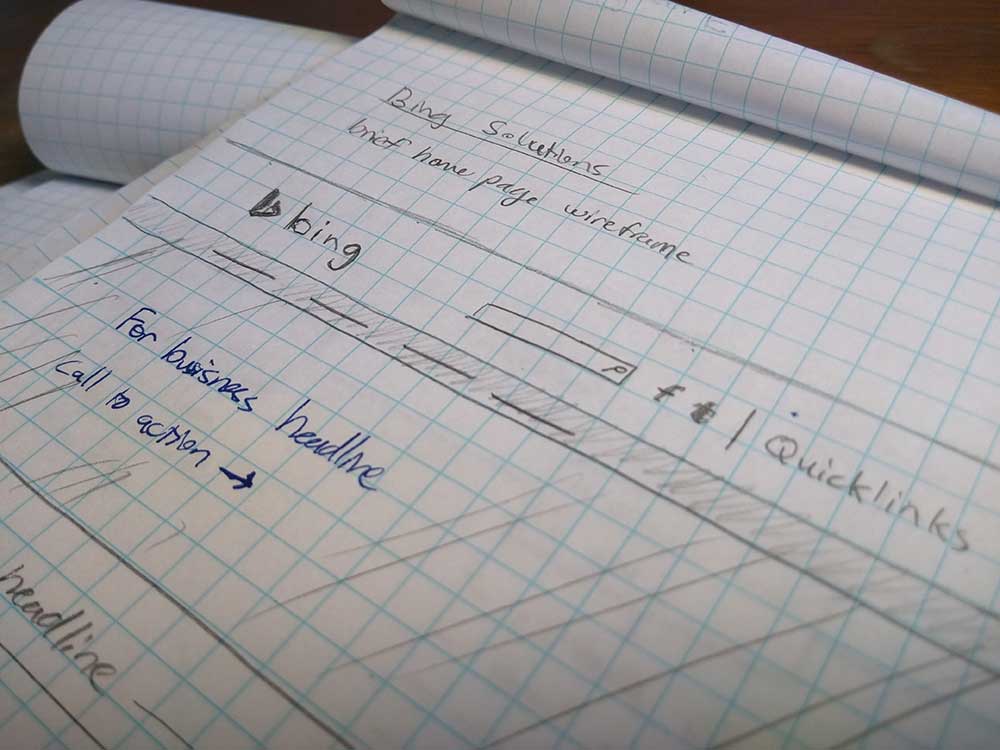 Bing Solutions
brief home page wireframe
b bing
f t | Quicklinks
For business headline
call to action →
headline